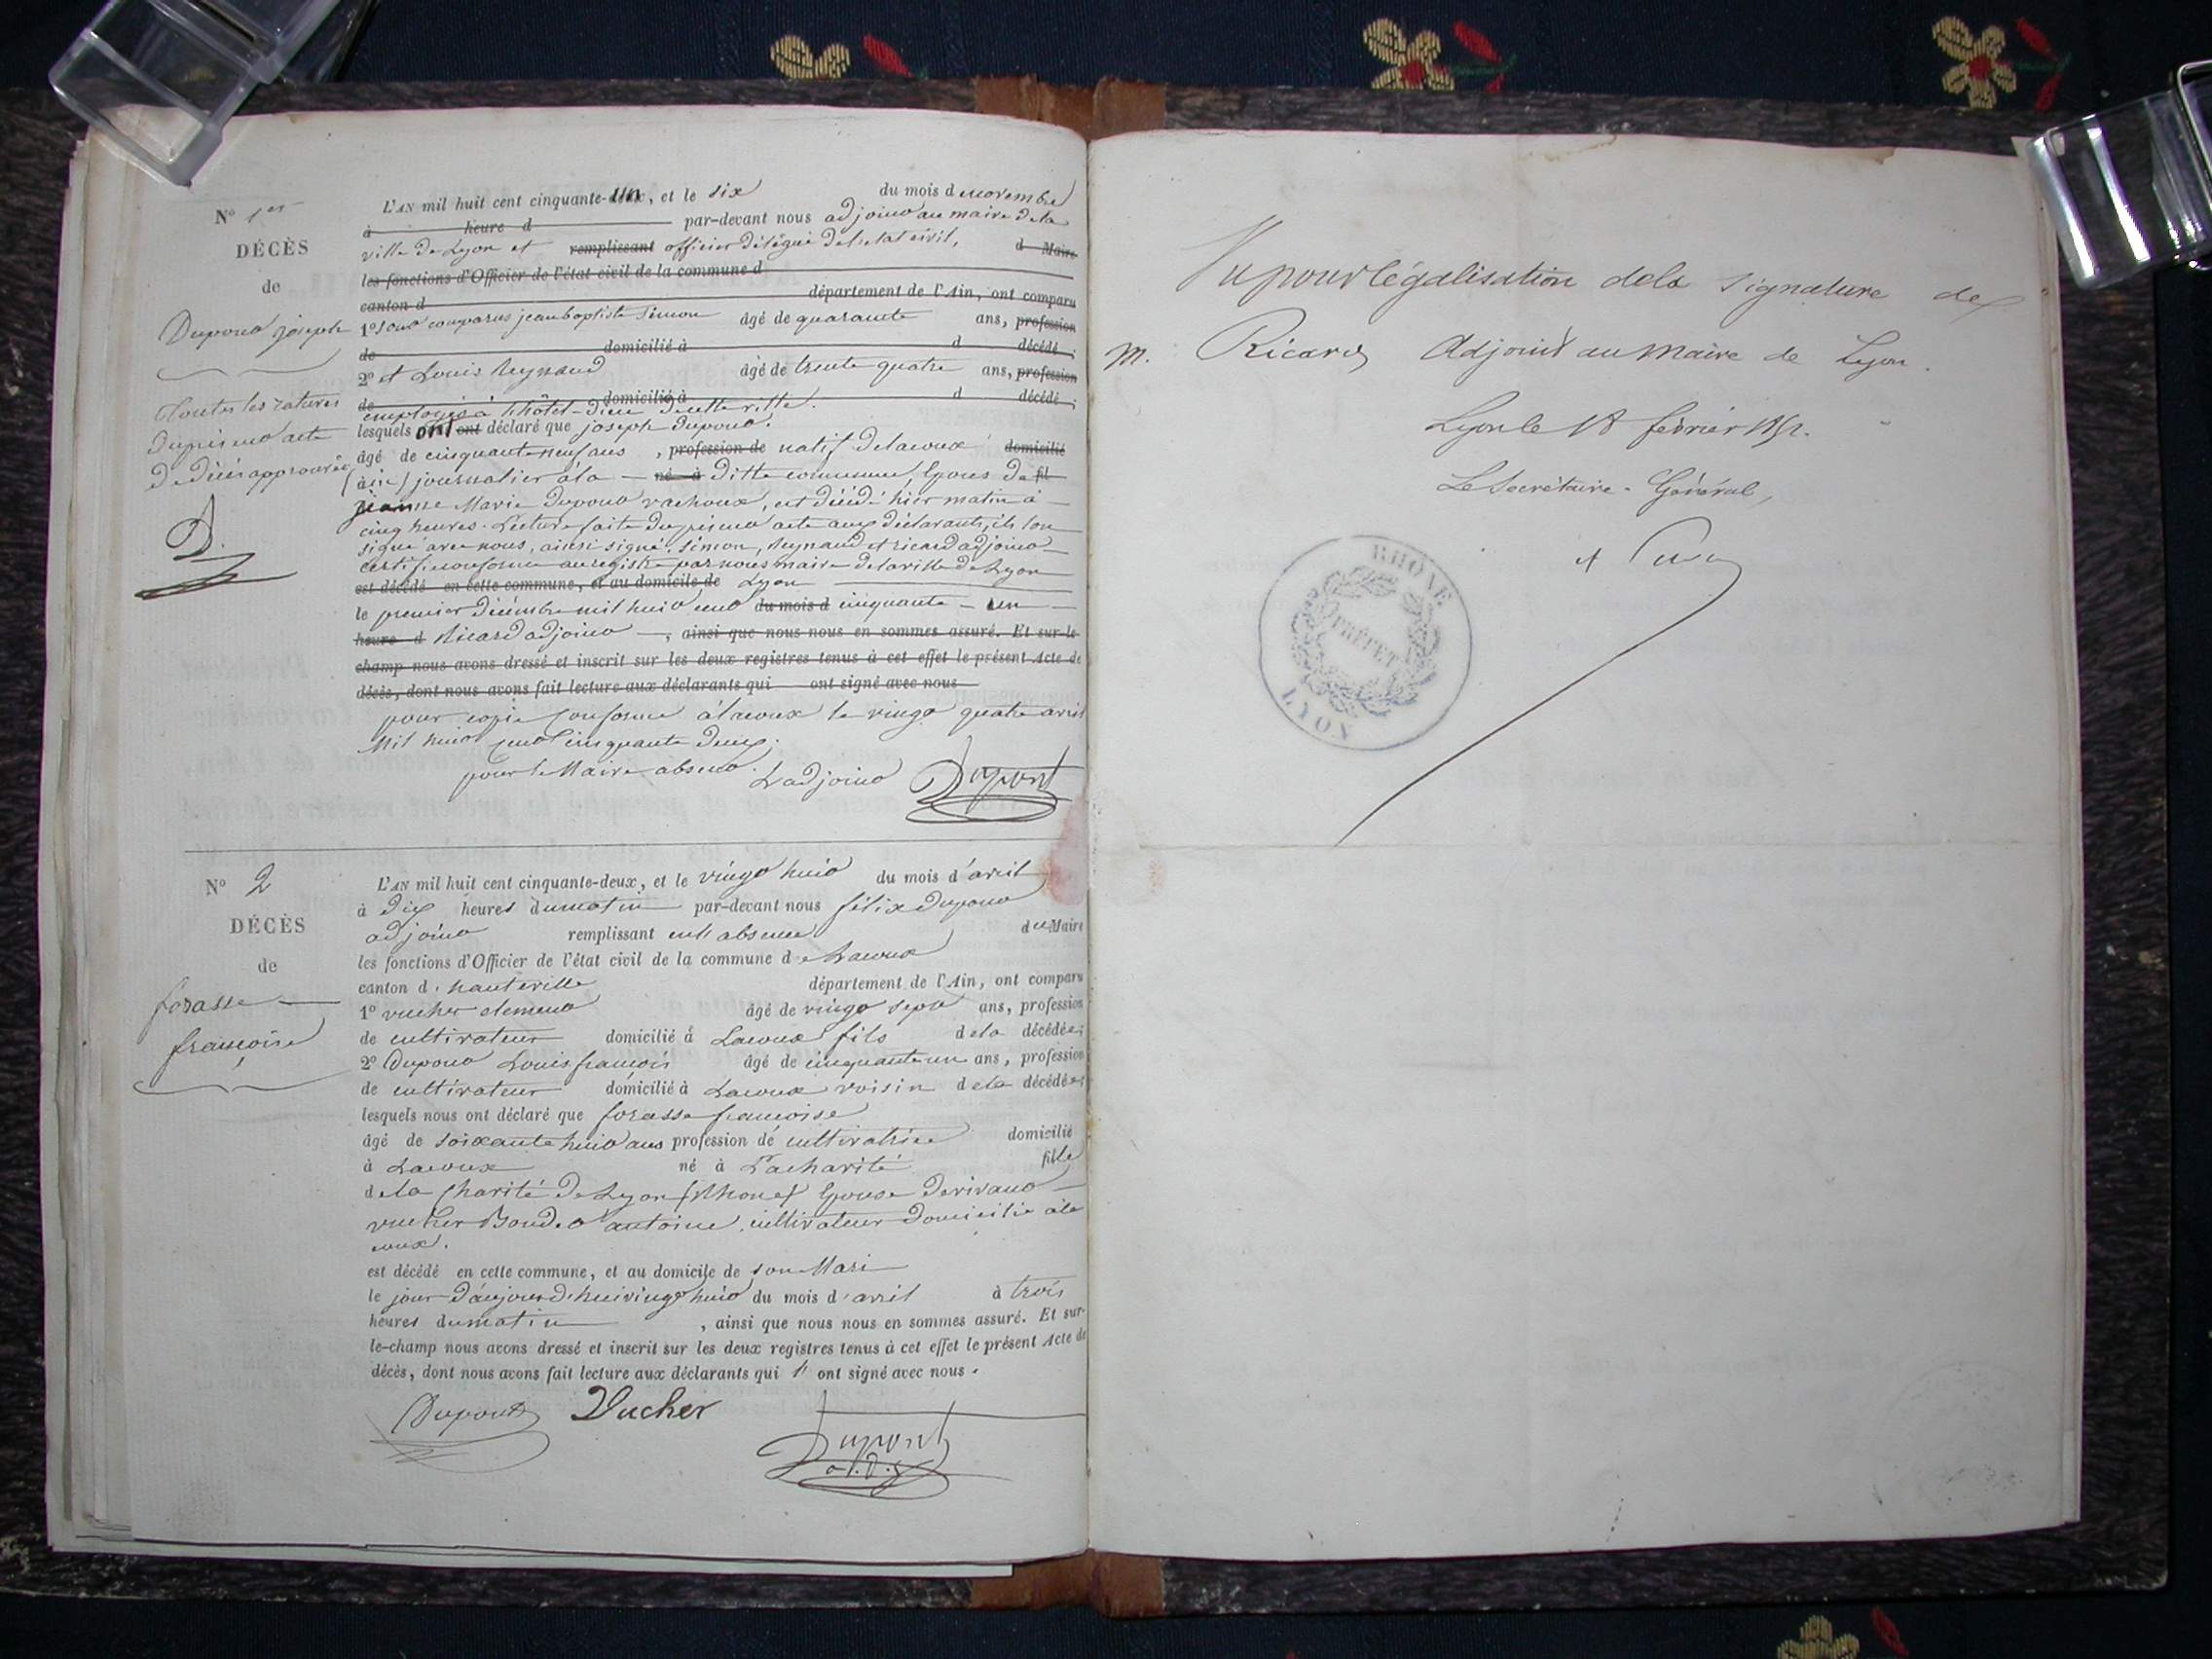 N° 1er
DÉCÈS
de
Dupont joseph
Toutes les ratures
du présent acte
de décès approuvées
D.
L'AN mil huit cent cinquante-un, et le six du mois d novembre
à heure d par-devant nous adjoint au maire de la
ville de Lyon et remplissant officier délégué de l'etat civil, d Maire
les fonctions d'Officier de l'état civil de la commune d
canton d département de l'Ain, ont comparu
1° sont comparus jean baptiste Simon âgé de quarante ans, profession
de domicilié à d décédé;
2° et Louis Reynaud âgé de trente quatre ans, profession
de domicilié à d décédé;
employés à l'hôtel-Dieu de cette ville.
lesquels ont ont déclaré que joseph dupont.
âgé de cinquante neuf ans, profession de natif de lacoux domicilié
(ain) journalier à la né à ditte commune, Epoux de fil
jeanne Marie dupont vachoux, est décédé hier matin à
cinq heures. Lecture faite du présent acte aux déclarants, ils l'on
signé avec nous, ainsi signé: Simon, Reynaud et ricard adjoint
certifié conforme au registre par nous maire de la ville de Lyon
est décédé en cette commune, et au domicile de Lyon
le premier décembre mil huit cent du mois d cinquante - un
heure d Ricard adjoint, ainsi que nous nous en sommes assuré. Et sur-le-
champ nous avons dressé et inscrit sur les deux registres tenus à cet effet le présent Acte de
décès, dont nous avons fait lecture aux déclarants qui ont signé avec nous
pour copie conforme à lacoux le vingt quatre avril
Mil huit cent cinquante deux.
pour le Maire absent. L'adjoint Dupont
N° 2
DÉCÈS
de
forasse
françoise
L'AN mil huit cent cinquante-deux, et le vingt huit du mois d'avril
à dix heures du matin par-devant nous félix dupont
adjoint remplissant en l'absence du Maire
les fonctions d'Officier de l'état civil de la commune de Lacoux
canton d'hauteville département de l'Ain, ont comparu
1° vucher clement âgé de vingt sept ans, profession
de cultivateur domicilié à Lacoux fils de la décédée;
2° Dupont Louis françois âgé de cinquante un ans, profession
de cultivateur domicilié à Lacoux voisin de la décédée;
lesquels nous ont déclaré que forasse françoise
âgé de soixante huit ans profession de cultivatrice domicilié
à Lacoux né à La charité fille
de la Charité de Lyon (Rhone) Epouse de vivant
vucher Boudot antoine, cultivateur domicilié à la
coux.
est décédé en cette commune, et au domicile de son Mari
le jour d'aujourd'hui vingt huit du mois d'avril à trois
heures du matin, ainsi que nous nous en sommes assuré. Et sur-
le-champ nous avons dressé et inscrit sur les deux registres tenus à cet effet le présent Acte de
décès, dont nous avons fait lecture aux déclarants qui l' ont signé avec nous.
Dupont Vucher
Dupont
Vu pour légalisation de la signature de
M. Ricard Adjoint au Maire de Lyon.
Lyon le 18 février 1852.
Le Secrétaire-Général,
RHÔNE
PRÉFET
LYON